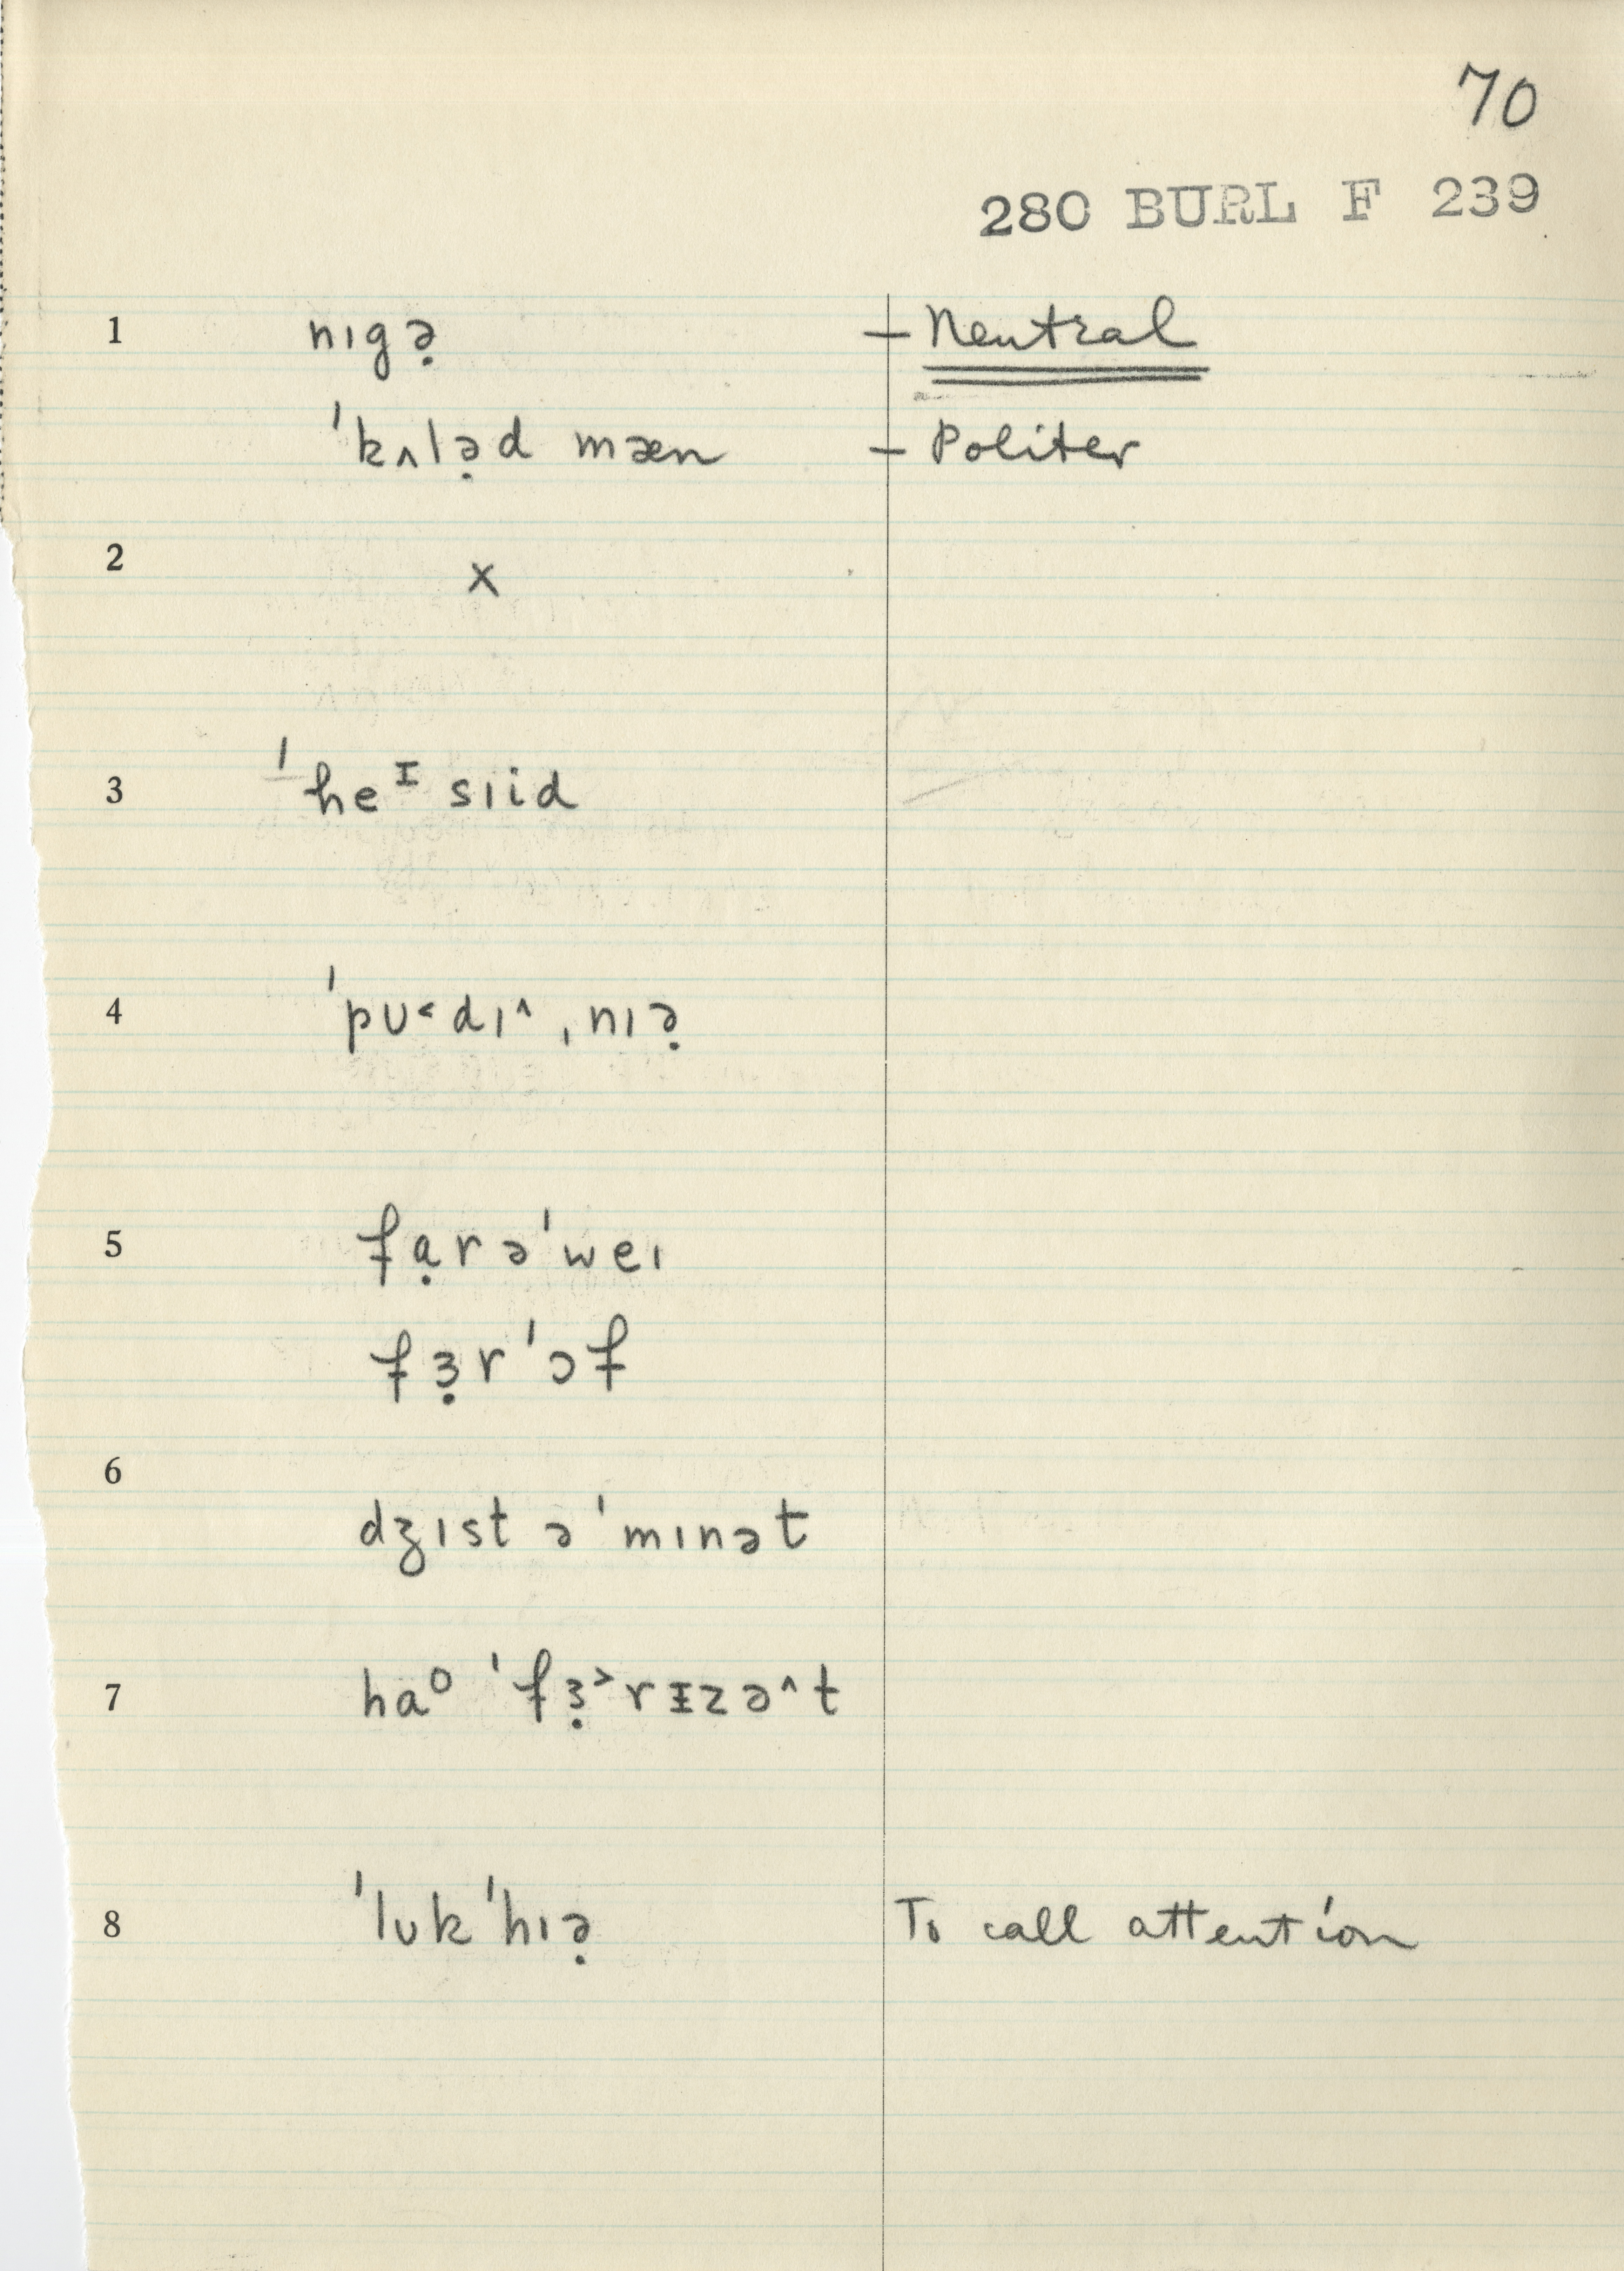 70
280 BURL F 239
1 nɪgə̣ — Neutral
ˈkʌlə̣d mæn — Politer
2 x
3 ˈheᶦ sɪid
4 ˈpʊ˂dɪ˄ˌnɪə̣
5 fạrəˈweɪ
fɜ̣rˈɔf
6 dʒɪst əˈmɪnət
7 haᵒ ˈfɜ̣˃rᵻzə˄t
8 ˈlʊkˈhɪə̣ To call attention